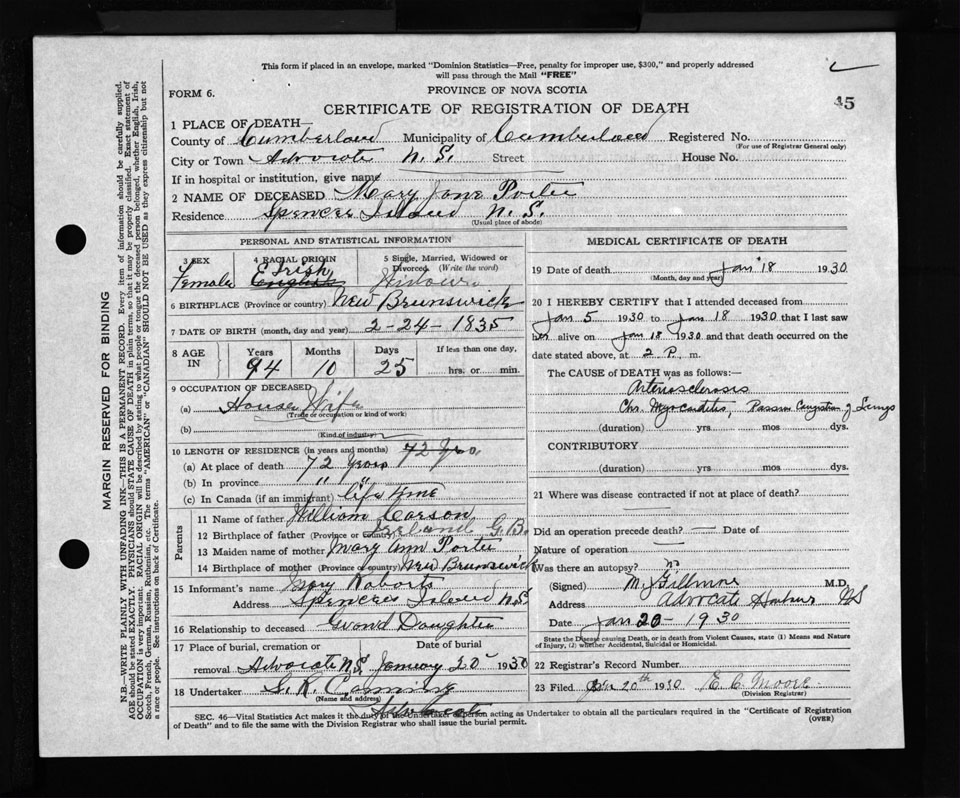 This form if placed in an envelope, marked "Dominion Statistics—Free, penalty for improper use, $300," and properly addressed
will pass through the Mail "FREE"
PROVINCE OF NOVA SCOTIA
FORM 6.
CERTIFICATE OF REGISTRATION OF DEATH
45
1 PLACE OF DEATH—
County of Cumberland Municipality of Cumberland Registered No.
(For use of Registrar General only)
City or Town Advocate N.S. Street House No.
If in hospital or institution, give name
2 NAME OF DECEASED Mary Jane Porter
Residence Spencer Island N.S.
(Usual place of abode)
PERSONAL AND STATISTICAL INFORMATION
3 SEX Female
4 RACIAL ORIGIN E Irish English
5 Single, Married, Widowed or Divorced (Write the word) Widow
6 BIRTHPLACE (Province or country) New Brunswick
7 DATE OF BIRTH (month, day and year) 2-24-1835
8 AGE IN Years 94 Months 10 Days 25 If less than one day, hrs. or min.
9 OCCUPATION OF DECEASED
(a) House Wife
(Trade or occupation or kind of work)
(b)
(Kind of industry)
10 LENGTH OF RESIDENCE (in years and months) 72 Yrs.
(a) At place of death 72 Years
(b) In province " "
(c) In Canada (if an immigrant) life time
Parents
11 Name of father William Carson
12 Birthplace of father (Province or country) Ireland G.B.
13 Maiden name of mother Mary Ann Porter
14 Birthplace of mother (Province or country) New Brunswick
15 Informant's name Mary Roberts
Address Spencers Island N.S
16 Relationship to deceased Grand Daughter
17 Place of burial, cremation or removal Advocate N.S. Date of burial January 20 1930
18 Undertaker
(Name and address)
Advocate
MEDICAL CERTIFICATE OF DEATH
19 Date of death Jan 18 1930
(Month, day and year)
20 I HEREBY CERTIFY that I attended deceased from
Jan 5 1930 to Jan 18 1930 that I last saw
her alive on Jan 18 1930 and that death occurred on
date stated above, at 2 P. m.
The CAUSE of DEATH was as follows:—
Arteriosclerosis
Chr. Myocarditis, Passive Congestion of Lungs
(duration) yrs. mos. dys.
CONTRIBUTORY
(duration) yrs. mos. dys.
21 Where was disease contracted if not at place of death?
Did an operation precede death? — Date of
Nature of operation —
Was there an autopsy? no
(Signed) M.D.
Address Advocate Harbor NS
Date Jan 20-1930
State the Disease causing Death, or in death from Violent Causes, state (1) Means and Nature
of Injury, (2) whether Accidental, Suicidal or Homicidal.
22 Registrar's Record Number
23 Filed Jan 20th 1930 E. C. Moore
(Division Registrar)
SEC. 46—Vital Statistics Act makes it the duty of the Undertaker or person acting as Undertaker to obtain all the particulars required in the "Certificate of Registration
of Death" and to file the same with the Division Registrar who shall issue the burial permit.
(OVER)
MARGIN RESERVED FOR BINDING
N.B.—WRITE PLAINLY WITH UNFADING INK—THIS IS A PERMANENT RECORD. Every item of information should be carefully supplied.
AGE should be stated EXACTLY. PHYSICIANS should STATE CAUSE OF DEATH in plain terms, so that it may be properly classified. Exact statement of
OCCUPATION is very important. RACIAL ORIGIN will be described by stating to what people or tongue the deceased person belonged, whether English, Irish,
Scotch, French, German, Russian, Ruthenian, etc. The terms "AMERICAN" or "CANADIAN" SHOULD NOT BE USED as they express citizenship but not
a race or people. See instructions on back of Certificate.